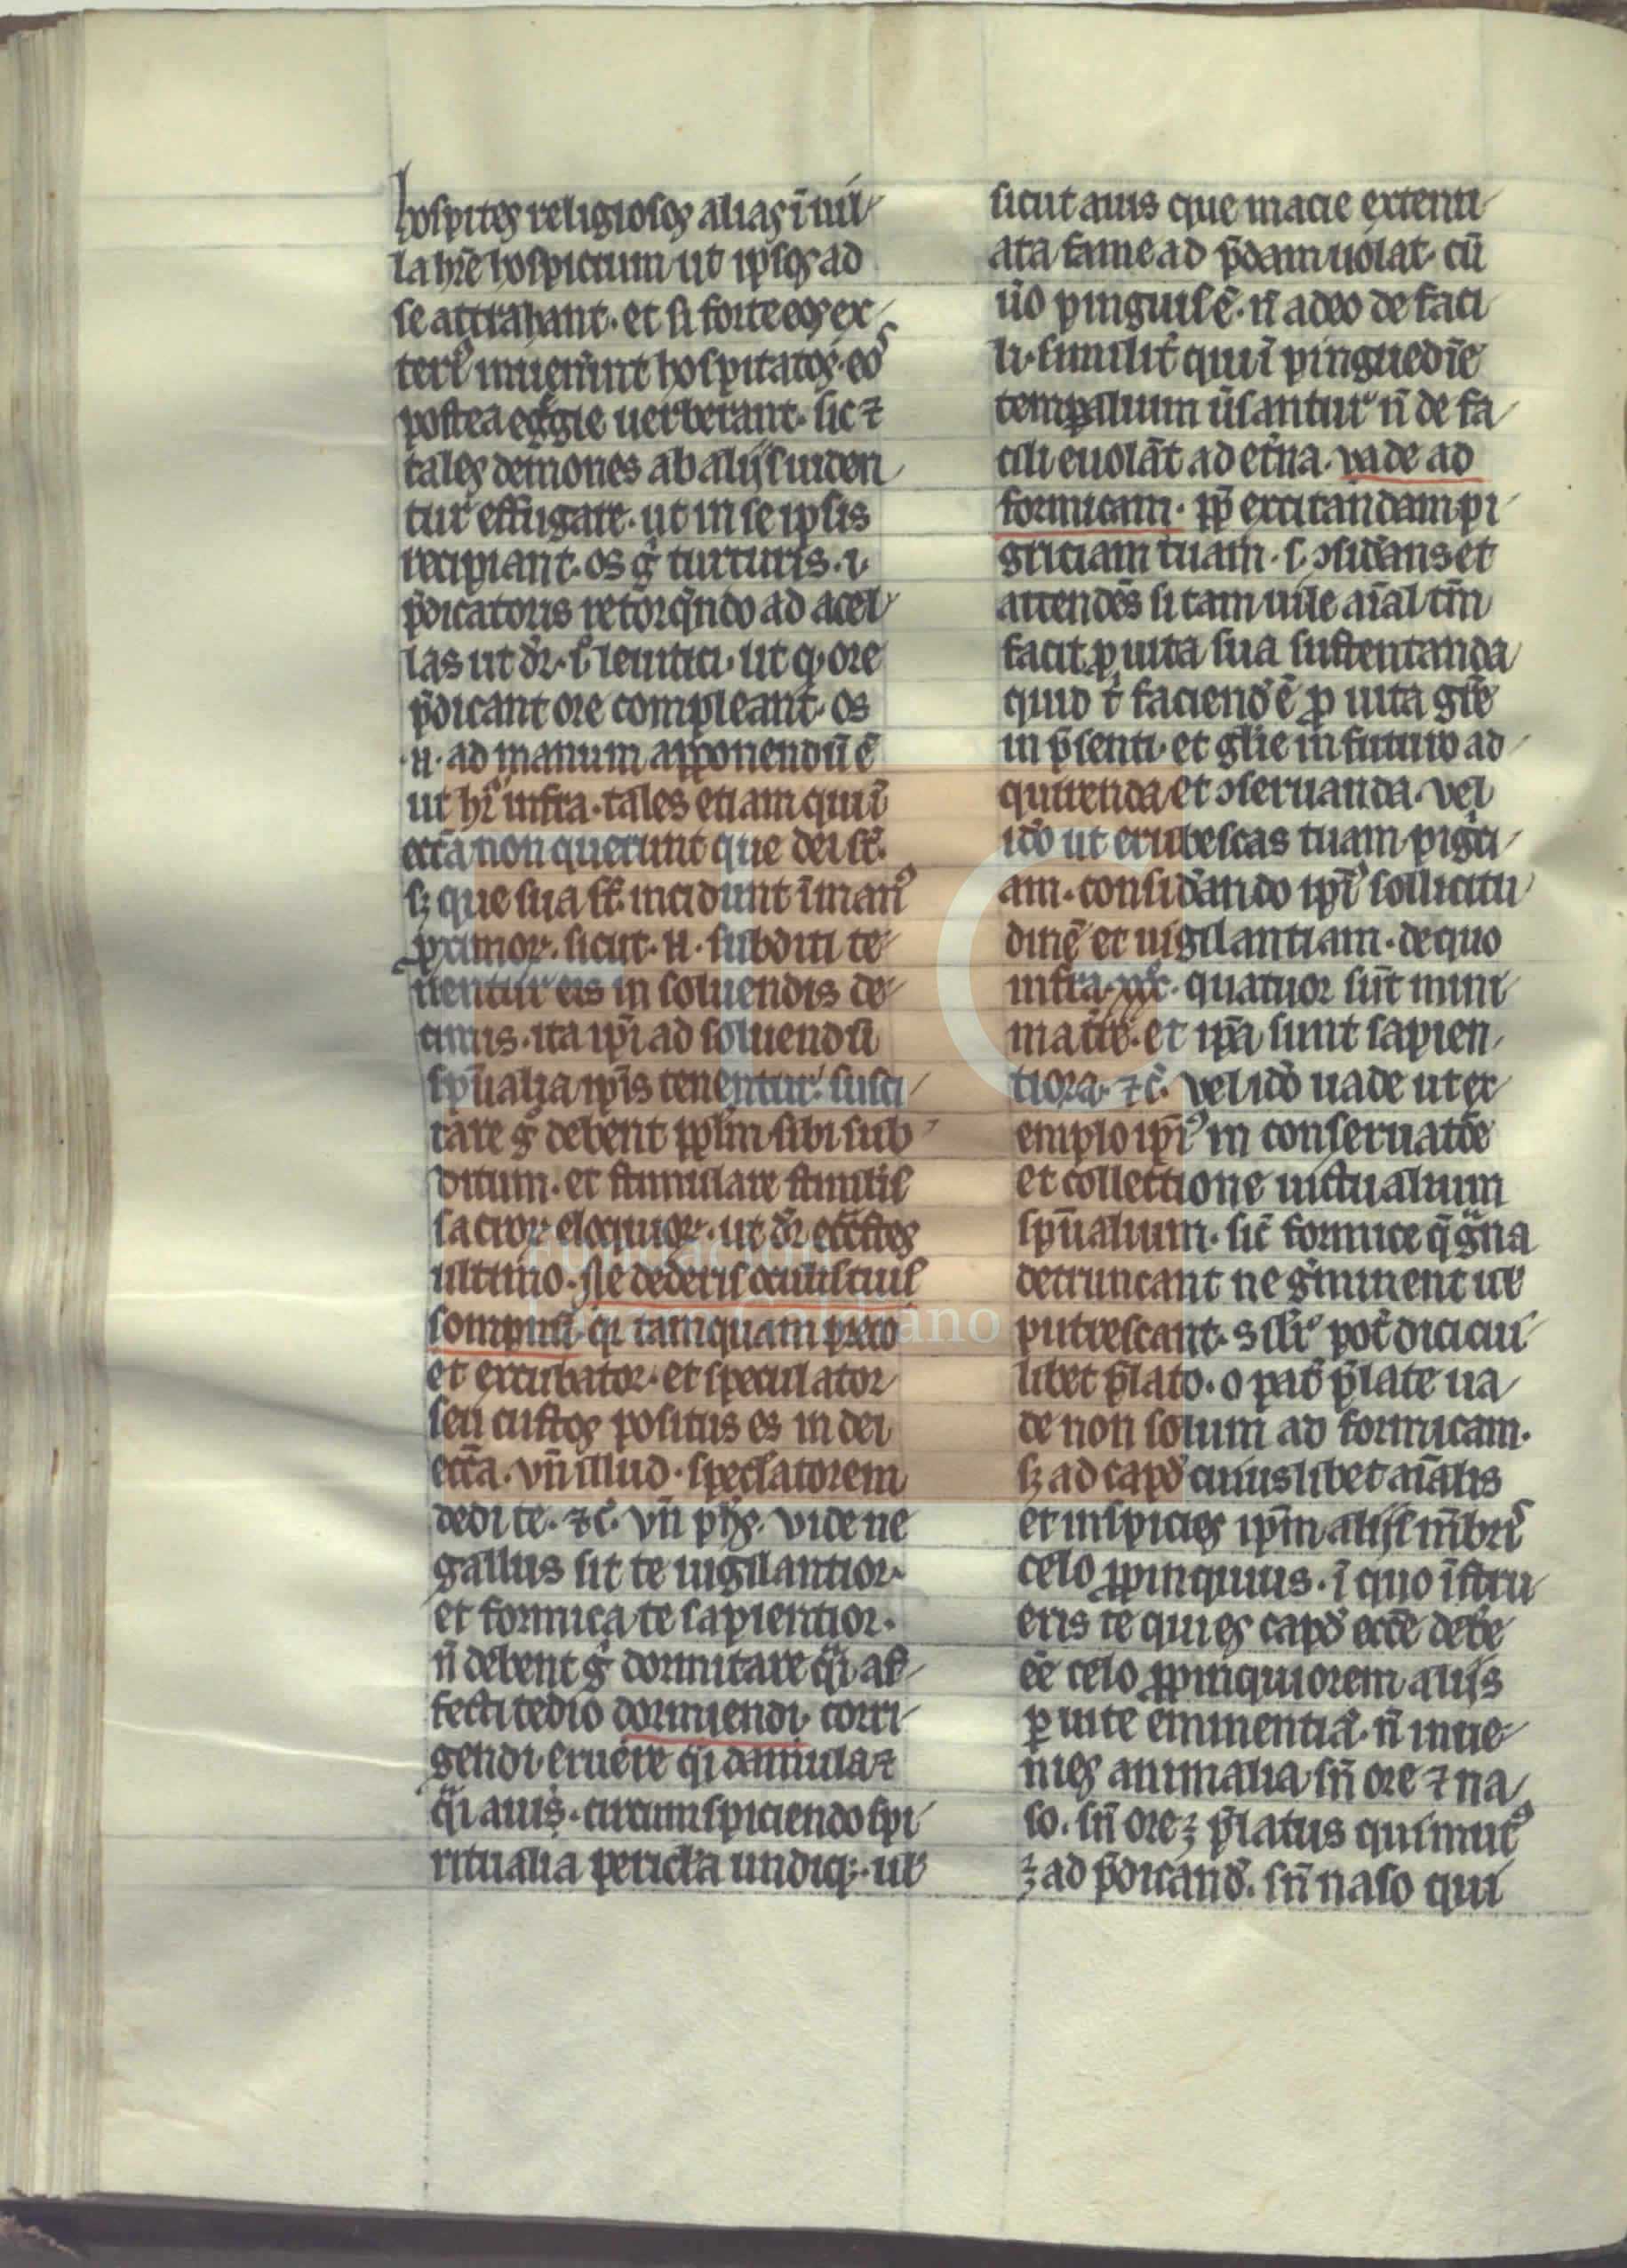 hospites religiosos alias ī uil
la hr̄e hospicium ut ipsos ad
se attrahant. et si forte eos ex
teri⁹ inuen̄int hospitatos. eos
postea eg̃gie uerberant. sic ⁊
tales demones ab alijs uiden
tur effugare. ut in se ipsis
recipiant. os g̊ turturis .i.
p̄dicatoris retorq̄ndo ad acel
las ut dr̄. leuitici. ut q ore
p̄dicant ore compleant. os
.n. ad manum apponendū ē
ut hr̄ infra. tales etiam qui ī
ecc̄a non querunt que dei sūt.
sꝫ que sua sūt. incidunt ī man⁹
sicut .n. subditi te
nentur eis in soluendis de
cimis. ita ip̄i ad soluendū
sp̄ualia ip̄is tenentur. susci
tare g̊ debent pp̄lm sibi sub
ditum. et stimulare stimulis
sacroꝝ eloquioꝝ. ut dr̄ ecc̄stes
ultimo. Ne dederis oculis tuis
sompnū. q̇ tamquam preco
et excubator. et speculator
seu custos positus es in dei
ecc̄a. vn̄ illud. spec̄latorem
dedi te. ⁊c̄. vn̄ ph̄s. vide ne
gallus sit te uigilantior.
et formica te sapientior.
n̄ debent g̊ dormitare q̄i af
fecti tedio dormiendi. corri
gendi. eruere q̄i damula ⁊
q̄i auis. circumspiciendo spi
ritualia pericl̄a undiqꝫ. uł
sicut auis que macie extenu
ata fame ad p̄dam uolat. cū
ūo pinguis ē. n̄ adeo de faci
li. similit̄ qui ī pinguedīe
temꝑalium ūsantur n̄ de fa
cili euolāt ad et̄na. vade ad
formicam. pp̄ excitandam pi
griciam tuam. s. ɔsid̄ans et
attendēs si tam uile aīal tm̄
facit ꝓ uita sua sustentanda
quid t̄ faciend̄ ē ꝓ uita gr̄e
in p̄senti. et gl̄ie in futuro ad
quirenda et ɔseruanda. vel
id̄o ut erubescas tuam pigr̄ci
am. considando ip̄i⁹ sollicitu
dinē et uigilantiam. de quo
infra. xxx. quatuor sūt mini
ma tr̄re. et ip̄a sunt sapien
tiora. ⁊c̄. vel id̄o uade ut ex
emplo ip̄i⁹ in conseruatōe
et collectione uictualium
sp̄ualium. sic̄ formice q̄ g̃na
detruncant ne g̃minent uł
putrescant. Silr̄ pot̄ dici cui
libet p̄lato. o pat̄ p̄late ua
de non solum ad formicam.
sꝫ ad capd̄ cuiuslibet aīalis
et inspicies ip̄m alijs mēbris
celo ꝓpinquius. ī quo īstru
eris te qui es capd̄ ecc̄e debe
ēe celo ꝓpinquiorem alijs
ꝑ uite eminentiā. n̄ inue
nies animalia sn̄ ore ⁊ na
so. sn̄ ore ē p̄latus qui mut⁹
ē ad p̄dicand̄. sn̄ naso qui